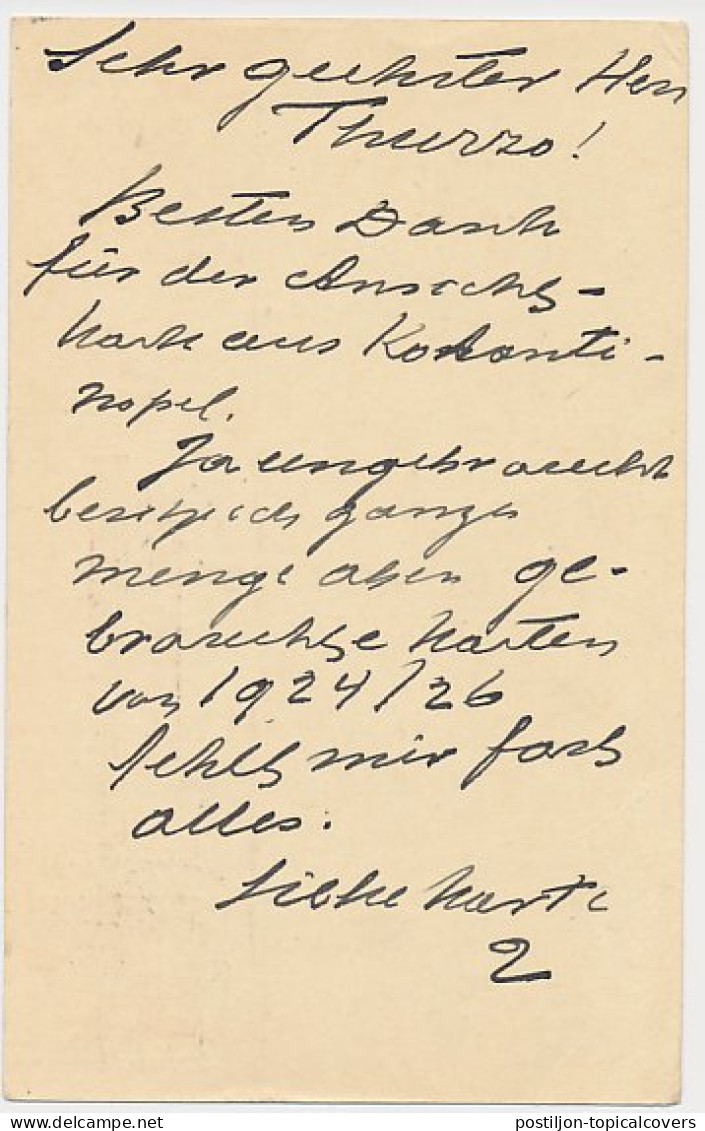 Sehr geehrter Herr
Thurzo!
Besten Dank
für der Ansichts-
karte aus Konstanti-
nopel.
Ja ungebraucht
besitze ich ganze
menge aber ge-
brauchte karten
von 1924/26
fehlt mir fast
alles.
Siehe karte
2
postiljon-topicalcovers.com